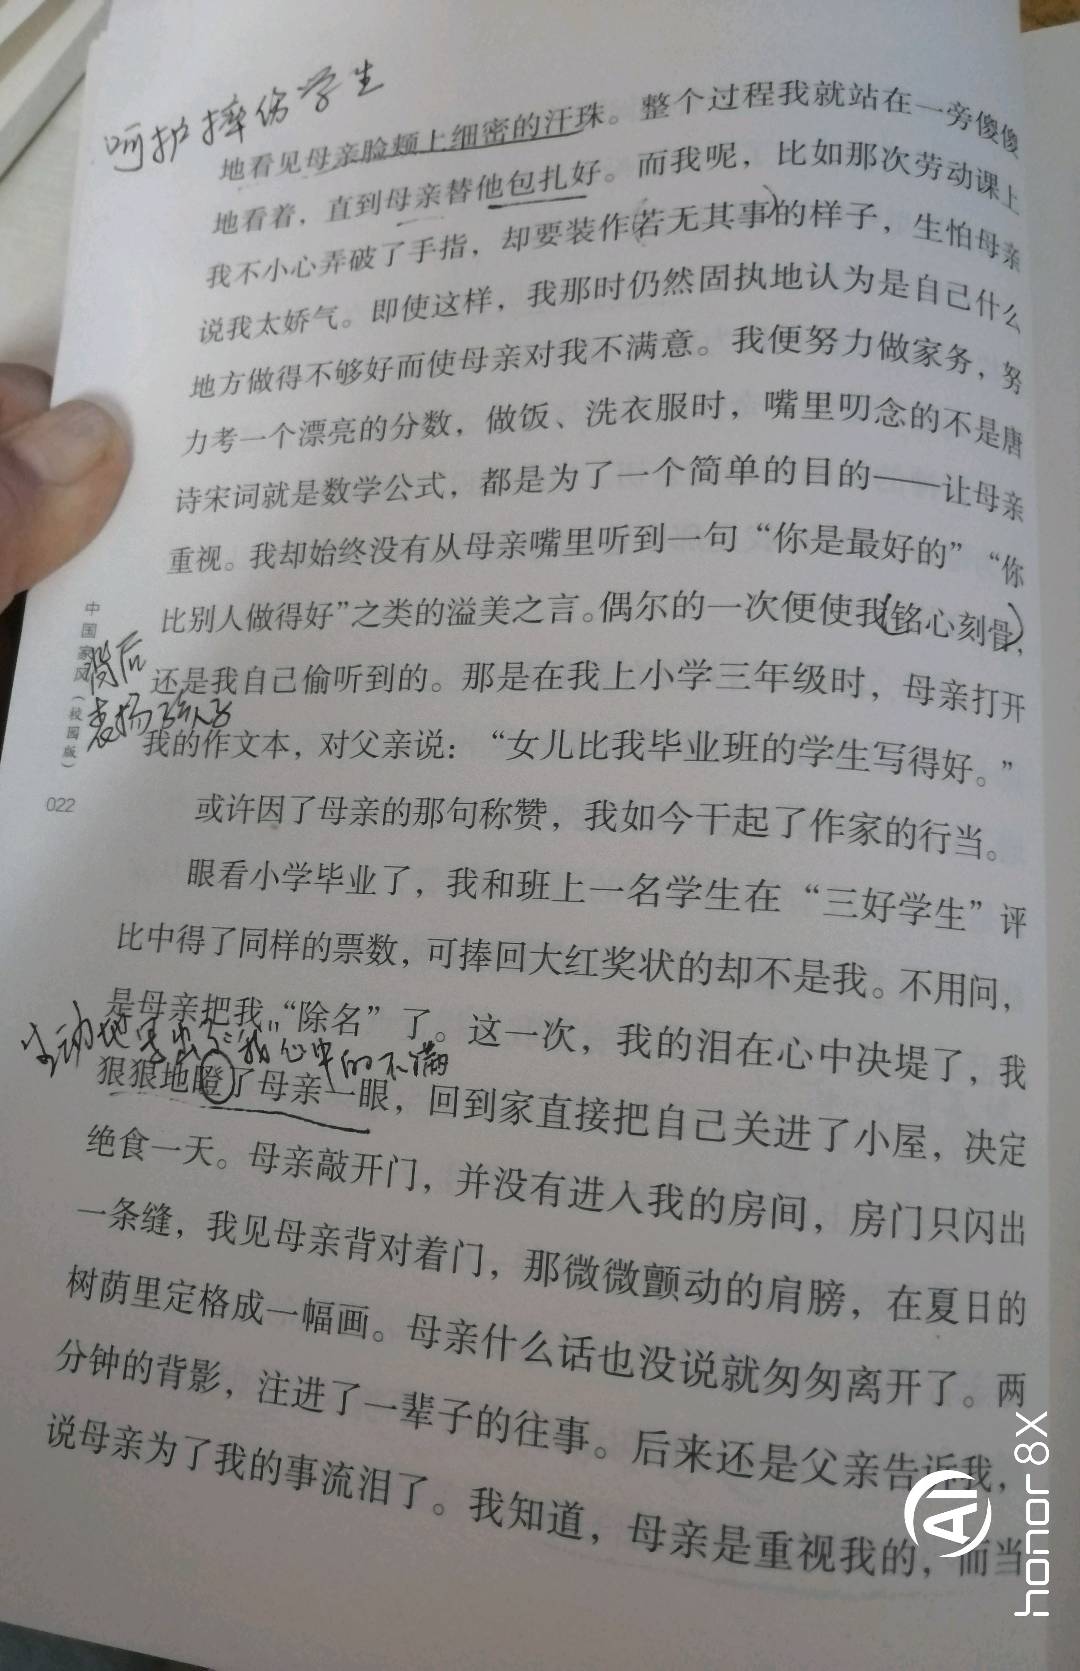 呵护摔伤学生
地看见母亲脸颊上细密的汗珠。整个过程我就站在一旁傻傻
地看着，直到母亲替他包扎好。而我呢，比如那次劳动课上
我不小心弄破了手指，却要装作(若无其事)的样子，生怕母亲
说我太娇气。即使这样，我那时仍然固执地认为是自己什么
地方做得不够好而使母亲对我不满意。我便努力做家务，努
力考一个漂亮的分数，做饭、洗衣服时，嘴里叨念的不是唐
诗宋词就是数学公式，都是为了一个简单的目的——让母亲
重视。我却始终没有从母亲嘴里听到一句“你是最好的”“你
比别人做得好”之类的溢美之言。偶尔的一次便使我(铭心刻骨)，
还是我自己偷听到的。那是在我上小学三年级时，母亲打开
我的作文本，对父亲说：“女儿比我毕业班的学生写得好。”
背后
表扬孩子
中国家风（校园版）
022
或许因了母亲的那句称赞，我如今干起了作家的行当。
眼看小学毕业了，我和班上一名学生在“三好学生”评
比中得了同样的票数，可捧回大红奖状的却不是我。不用问，
是母亲把我“除名”了。这一次，我的泪在心中决堤了，我
生动地写出了“我”心中的不满
狠狠地瞪了母亲一眼，回到家直接把自己关进了小屋，决定
绝食一天。母亲敲开门，并没有进入我的房间，房门只闪出
一条缝，我见母亲背对着门，那微微颤动的肩膀，在夏日的
树荫里定格成一幅画。母亲什么话也没说就匆匆离开了。两
分钟的背影，注进了一辈子的往事。后来还是父亲告诉我，
说母亲为了我的事流泪了。我知道，母亲是重视我的，而当
AI
honor 8X